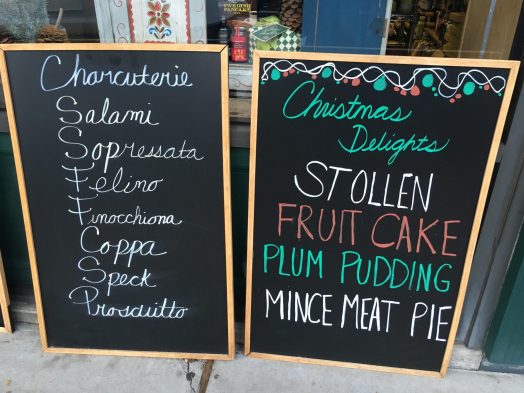 SWEDISH
PANCAKE
Charcuterie
Salami
Sopressata
Felino
Finocchiona
Coppa
Speck
Prosciutto
Christmas
Delights
STOLLEN
FRUIT CAKE
PLUM PUDDING
MINCE MEAT PIE